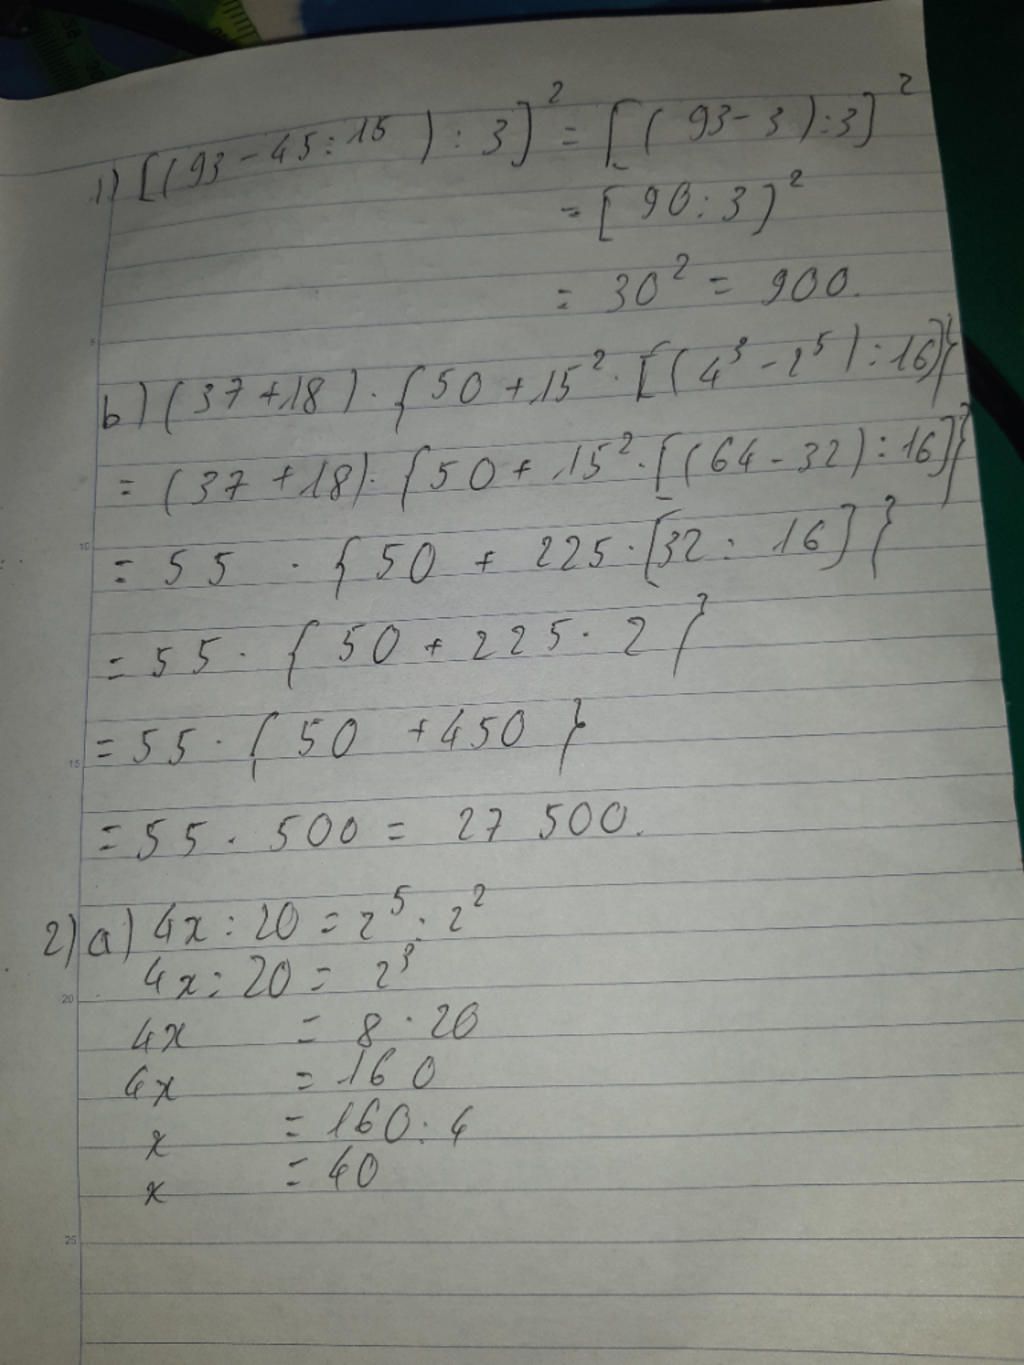 1) [(93 - 45 : 15) : 3]² = [(93 - 3) : 3]²
= [90 : 3]²
= 30² = 900.
b) (37 + 18) . {50 + 15² . [(4³ - 2⁵) : 16]}
= (37 + 18) . {50 + 15² . [(64 - 32) : 16]}
= 55 . {50 + 225 . [32 : 16]}
= 55 . {50 + 225 . 2}
= 55 . {50 + 450}
= 55 . 500 = 27 500.
2) a) 4x : 20 = 2⁵ : 2²
4x : 20 = 2³
4x = 8 . 20
4x = 160
x = 160 : 4
x = 40
5
10
15
20
25